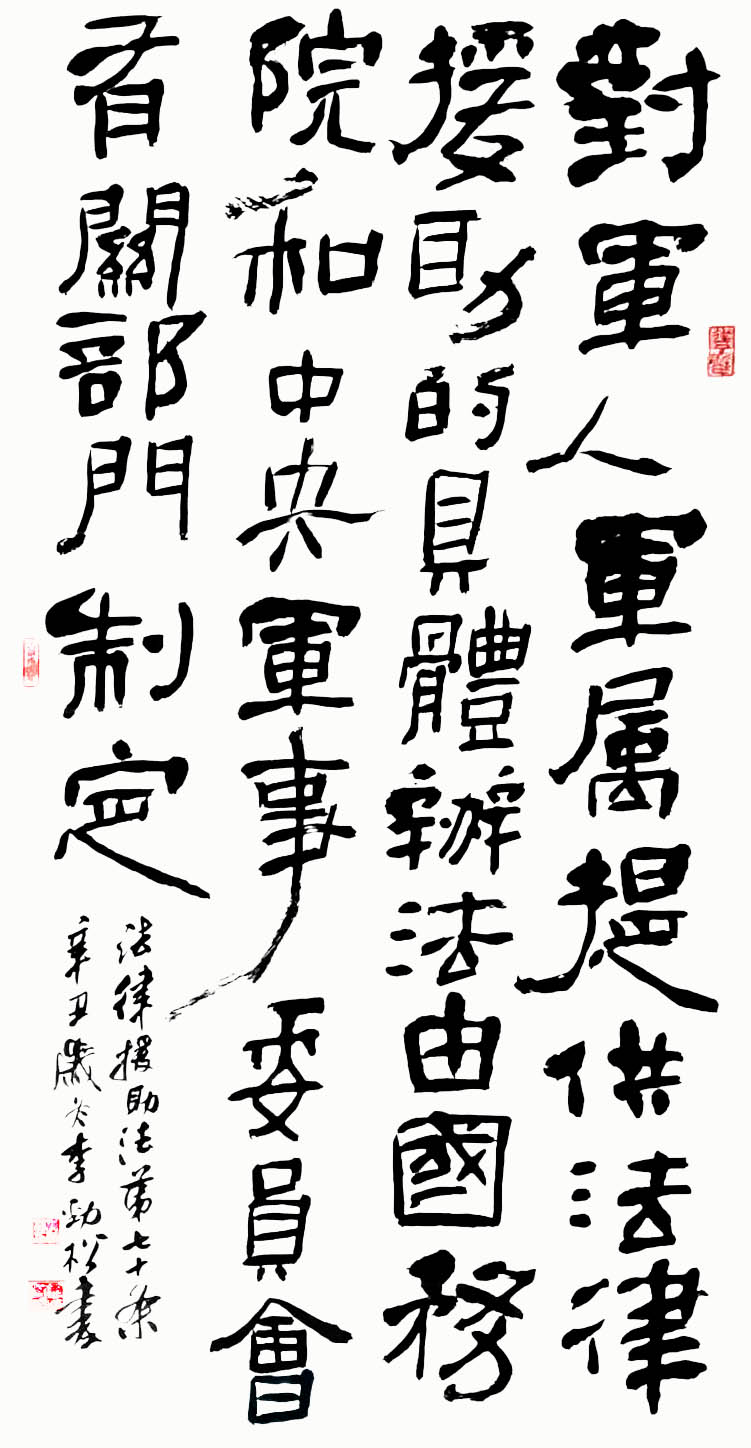 對軍人軍属提供法律
援助的具體辦法由國務
院和中央軍事委員會
有關部門制定
法律援助法第七十条
辛丑歲冬李勁松書